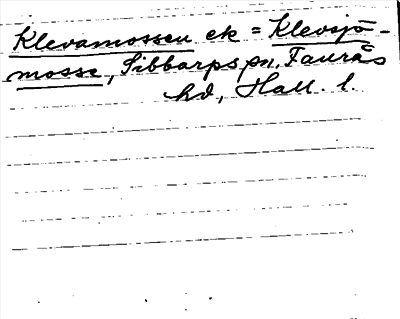 Klevamossen ek = Klevsjö-
mosse, Sibbarps sn, Faurås
hd, Hall. l.